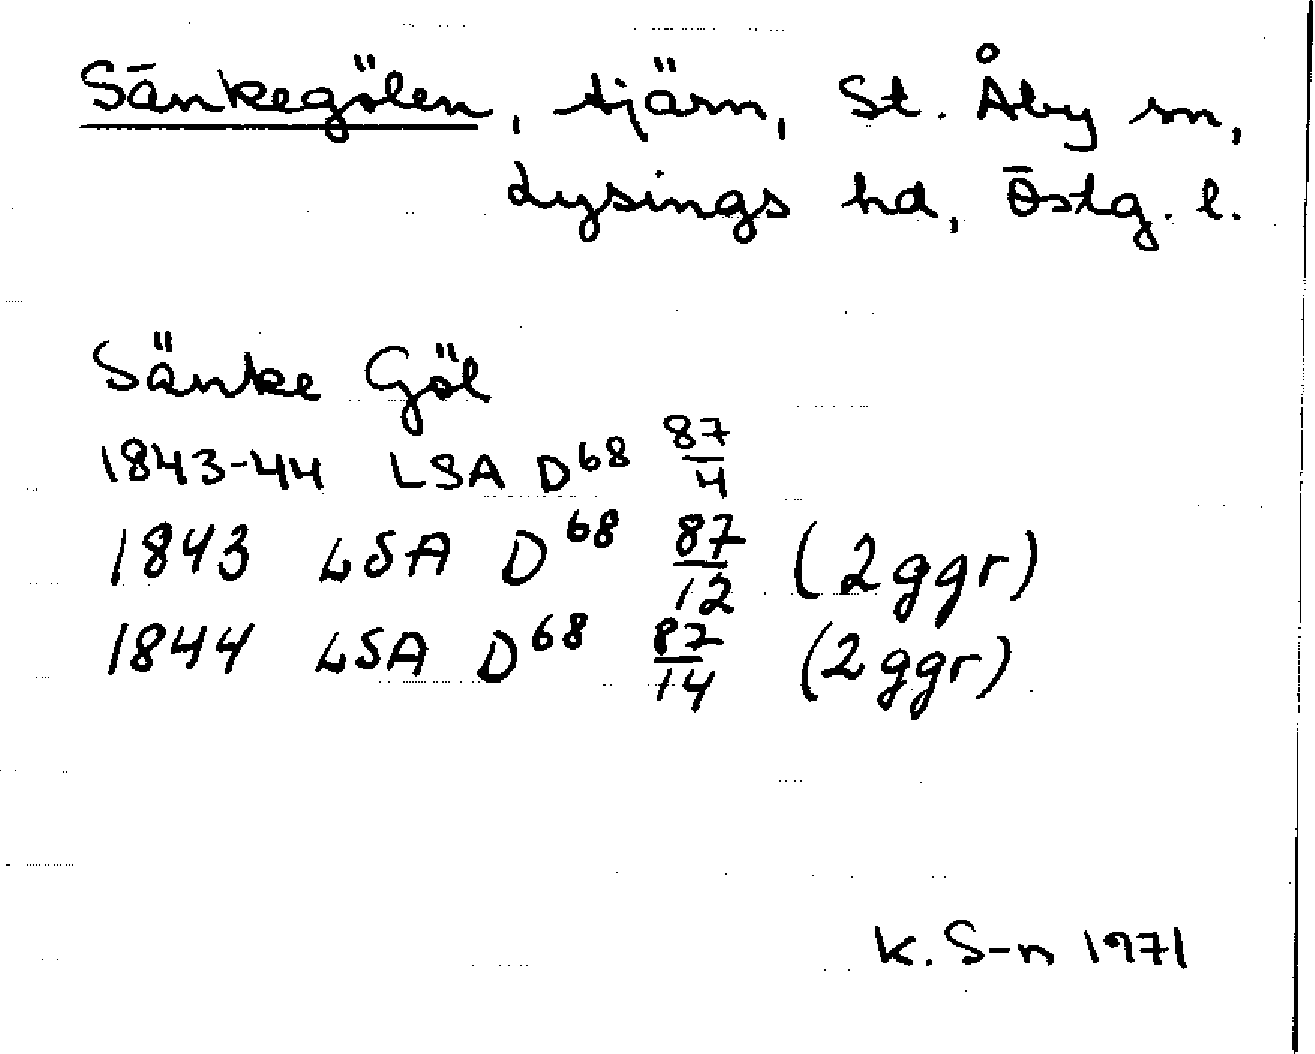 Sänkegölen, tjärn, St. Åby sn,
Lysings hd, Östg. l.
Sänke Göl
1843-44 LSA D68 87/4
1843 LSA D68 87/12 (2 ggr)
1844 LSA D68 87/14 (2 ggr)
K. S-n 1971